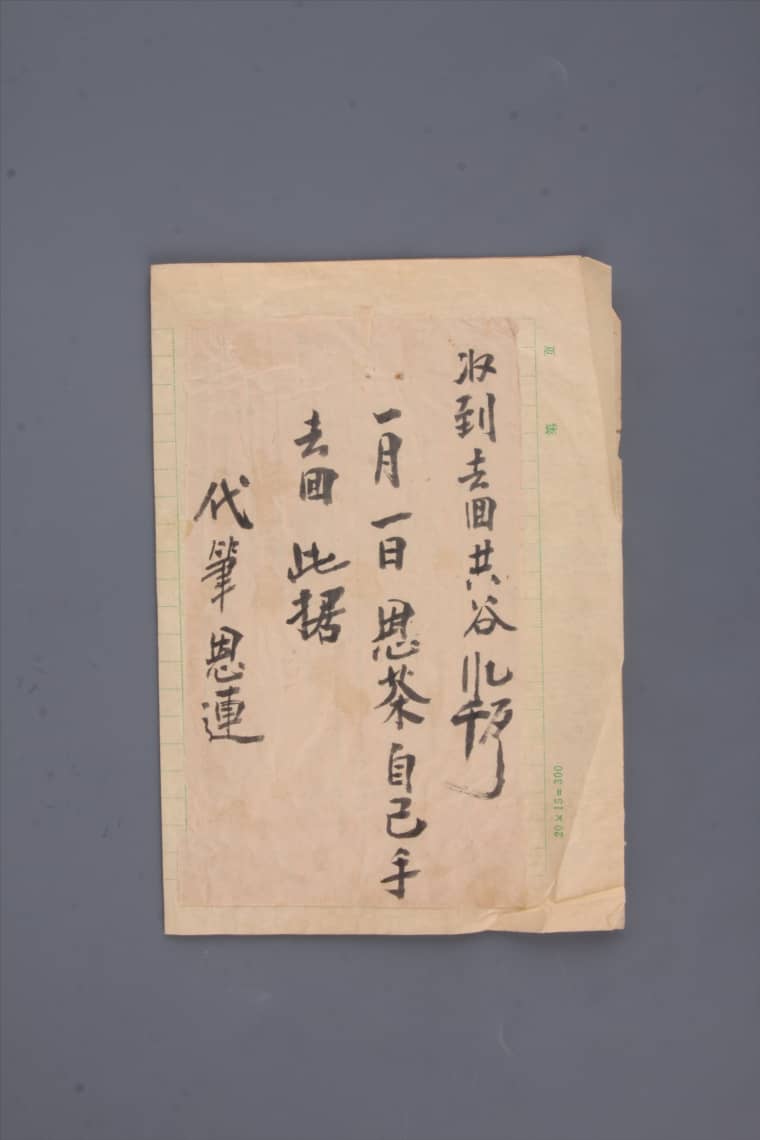 收到去回共谷
一月一日恩茶自己手
去回此据
代筆恩連
20×15=300